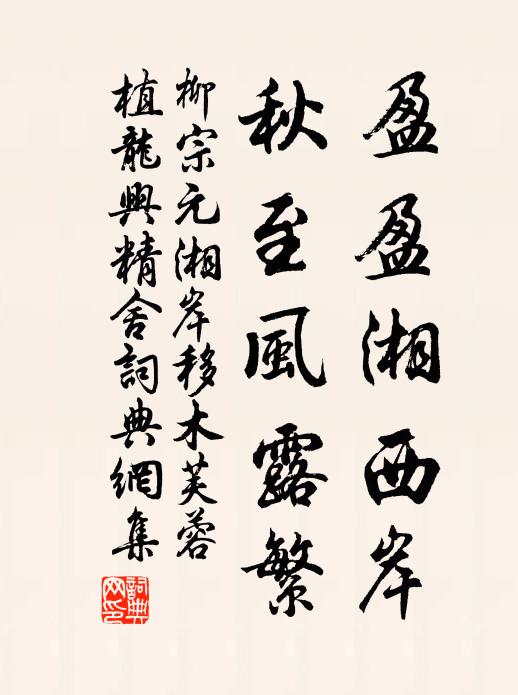 盈盈湘西岸
秋至風露繁
柳宗元湘岸移木芙蓉
植龍興精舍詞典網集
詞典網印